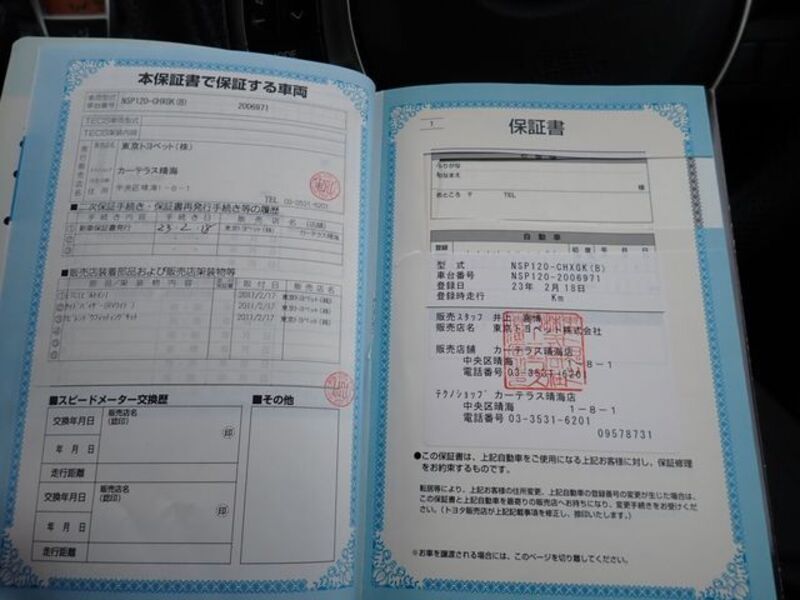 本保証書で保証する車両
車両型式 NSP120-CHXGK(B)
車台番号 2006971
TECS車両型式
TECS架装内容
販売店名 東京トヨペット(株)
カーテラス晴海
住所 中央区晴海1-8-1
TEL 03-3531-6201
■二次保証手続き・保証書再発行手続き等の履歴
手続き内容 手続き日 販売店名 (店舗)
① 新車保証書発行 23.2.18 東京トヨペット(株) カーテラス晴海
②
③
■販売店装着部品および販売店架装物等
部品/架装物内容 取付日 販売店名
2011/2/17 東京トヨペット(株)
② サイドバイザー(RVワイド) 2011/2/17 東京トヨペット(株)
2011/2/17 東京トヨペット(株)
④
⑤
⑥
■スピードメーター交換歴
交換年月日 販売店名 (認印)
印
年 月 日
走行距離
交換年月日 販売店名 (認印)
印
年 月 日
走行距離
■その他
1
保証書
ふりがな
おなまえ
様
おところ 〒 TEL
自動車
登録 初度 年 月
型式 NSP120-CHXGK(B)
車台番号 NSP120-2006971
登録日 23年 2月18日
登録時走行 Km
販売スタッフ 井上
販売店名 東京トヨペット株式会社
販売店舗 カーテラス晴海店
中央区晴海 1-8-1
電話番号 03-3531-6201
テクノショップ カーテラス晴海店
中央区晴海 1-8-1
電話番号 03-3531-6201
09578731
●この保証書は、上記自動車をご使用になる上記お客様に対し、保証修理
をお約束するものです。
転居等により、上記お客様の住所変更、上記自動車の登録番号の変更が生じた場合は、
この保証書と上記自動車を最寄りの販売店へお持ちになり、変更手続きをお受けくだ
さい。(トヨタ販売店が上記記載事項を修正し、捺印いたします。)
※お車を譲渡される場合には、このページを切り離してください。